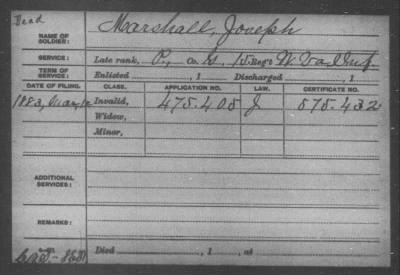 Dead
NAME OF SOLDIER: Marshall, Joseph
SERVICE: Late rank, P., Co. D, 15 Reg't W. Va. Inf
TERM OF SERVICE: Enlisted , 1 Discharged , 1
DATE OF FILING. CLASS. APPLICATION NO. LAW. CERTIFICATE NO.
1883, Invalid, 475.405 J 575.432
Widow,
Minor,
ADDITIONAL SERVICES:
REMARKS:
Died , 1 , at